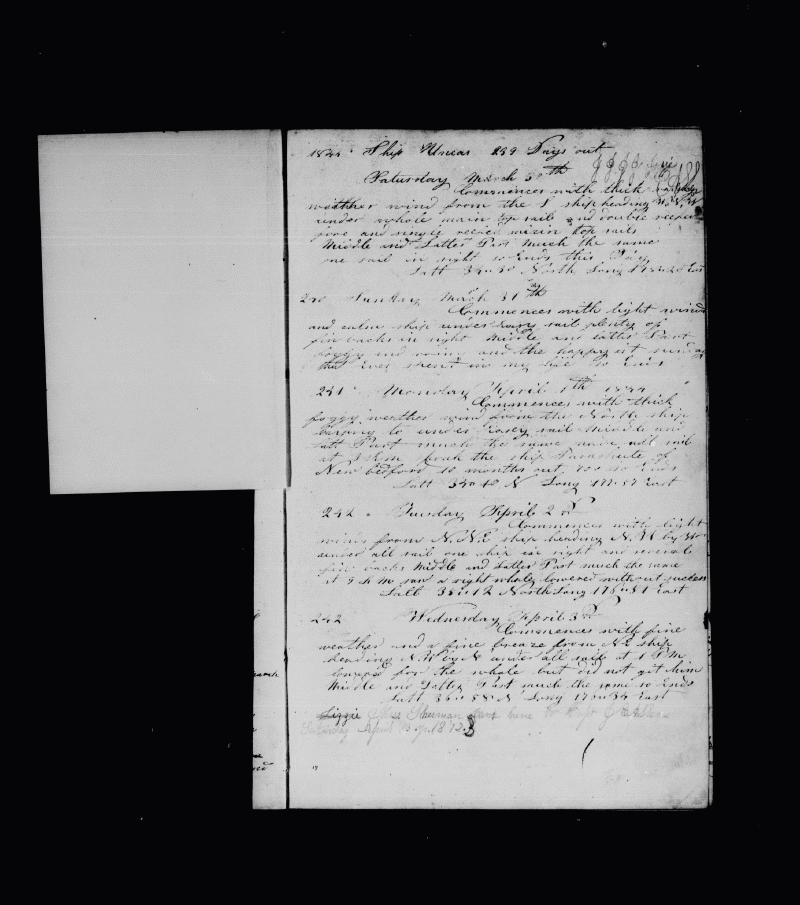 1844 Ship Uncas 239 Days out
Saturday March 30th
Commences with thick
weather wind from the S ship heading N. W
under whole main top sail and double reefed
fore and single reefed mizin top sails
Middle and Latter Part much the same
one sail in sight so Ends this Day
Latt 35 North Long East
240 Sunday March 31th
Commences with light winds
and calm ship under Easy sail plenty of
fin backs in sight Middle and Latter Part
foggy and and the happy
that Ever spent in my life So Ends
241 Monday April 1th 1844
Commences with thick
foggy weather wind from the North ship
to under Easey sail Middle and
Latt Part much the same sail
at 3 P M spoak the ship Parachute of
New bedford 10 months out so Ends
Latt N Long East
242 Tuesday April 2d
Commences with light
winds from N.N.E ship heading N. W by W
under all sail one ship in sight and
fin backs Middle and Latter Part much the same
at 9 A M saw a right whale lowered without success
Latt 35 12 North Long East
242 Wednesday April 3d
Commences with fine
weather and a fine breaze from N E ship
heading N.W by N under all sail at 1 P M
lowered for the whale but did not git him
Middle and Latter Part much the same so Ends
Latt N Long East
Lizzie Sherman
Saturday April 13 1872